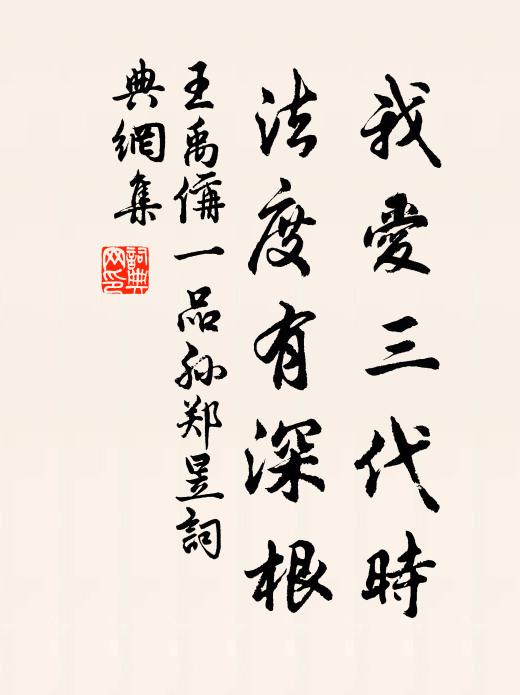 我愛三代時
法度有深根
王禹偁一品孙郑昱詞
典網集
詞典
网印